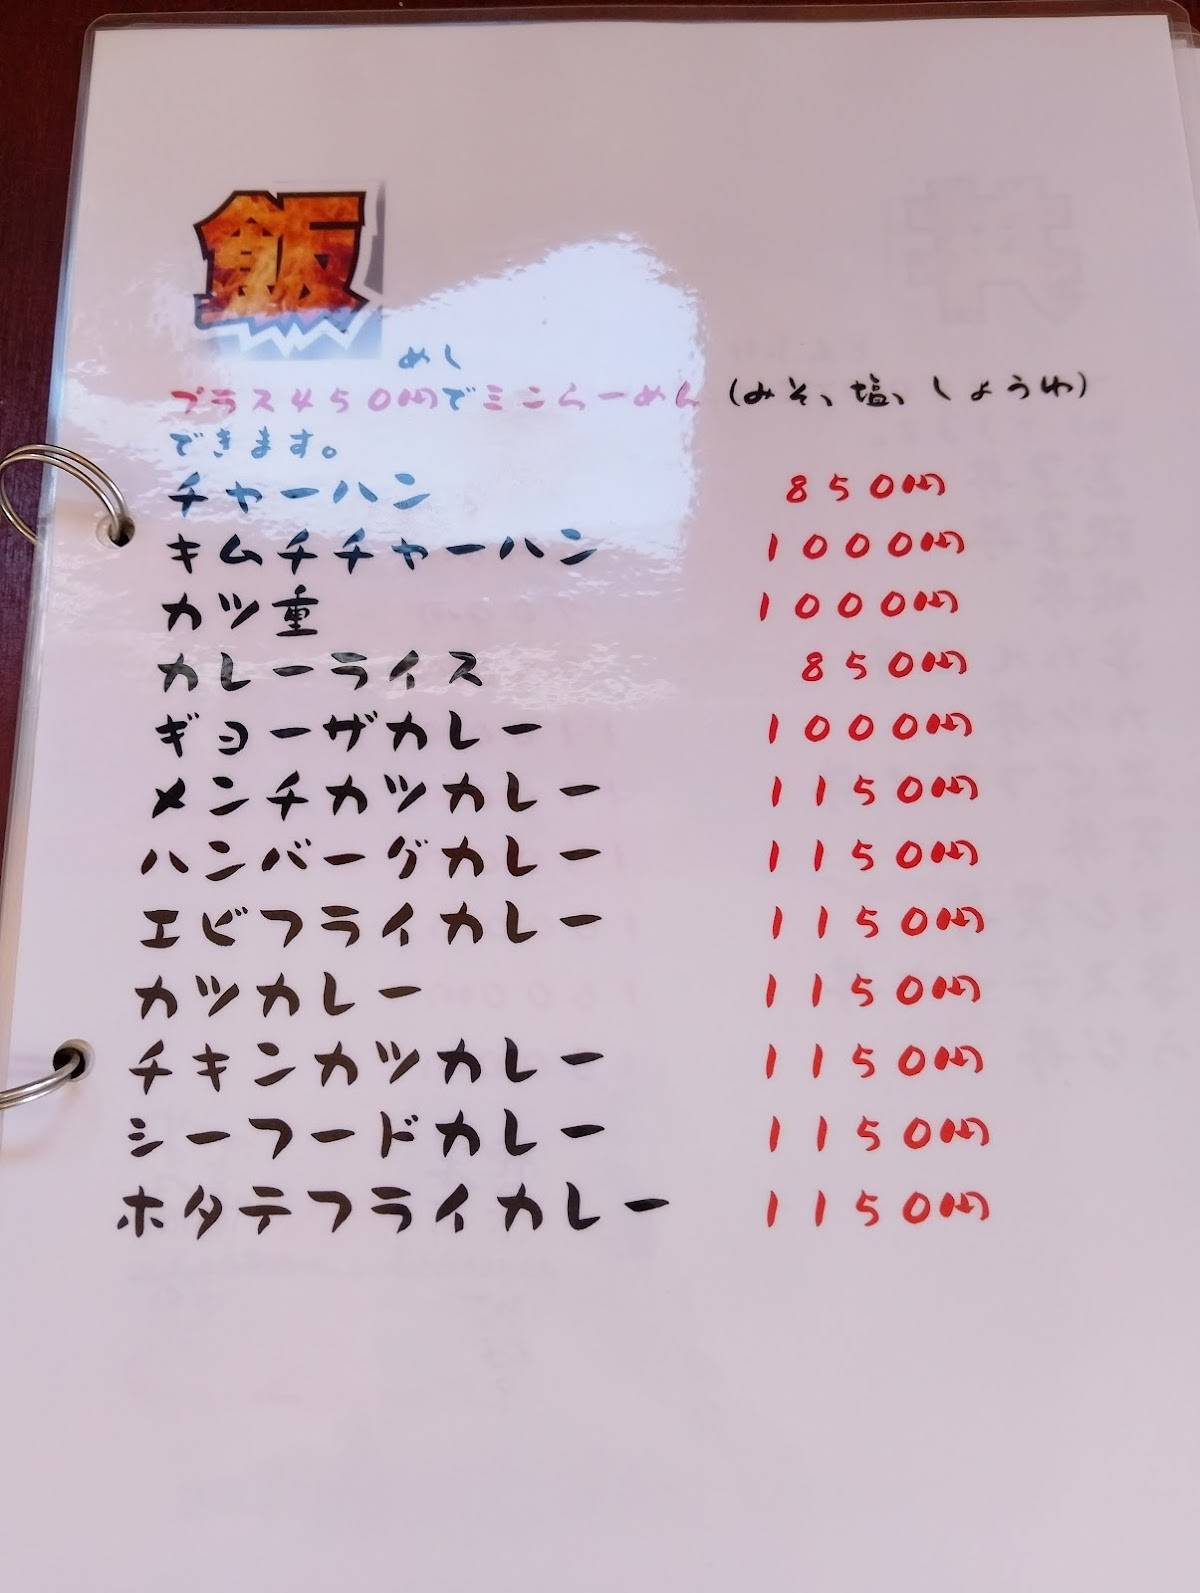 飯
めし
プラス450円でミニらーめん（みそ、塩、しょうゆ）
できます。
チャーハン 850円
キムチチャーハン 1000円
カツ重 1000円
カレーライス 850円
ギョーザカレー 1000円
メンチカツカレー 1150円
ハンバーグカレー 1150円
エビフライカレー 1150円
カツカレー 1150円
チキンカツカレー 1150円
シーフードカレー 1150円
ホタテフライカレー 1150円